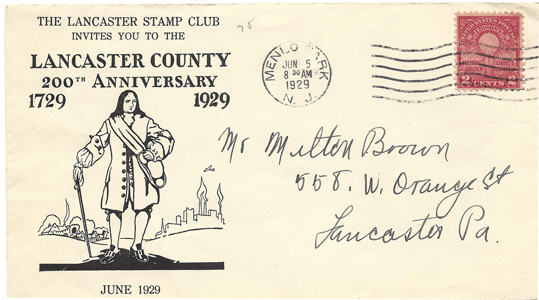 THE LANCASTER STAMP CLUB
INVITES YOU TO THE
LANCASTER COUNTY
200TH ANNIVERSARY
1729 1929
JUNE 1929
25
MENLO PARK
JUN 5
8 30 AM
1929
N. J.
UNITED STATES POSTAGE
2 CENTS 2
Mr Milton Brown
558. W. Orange St
Lancaster Pa.